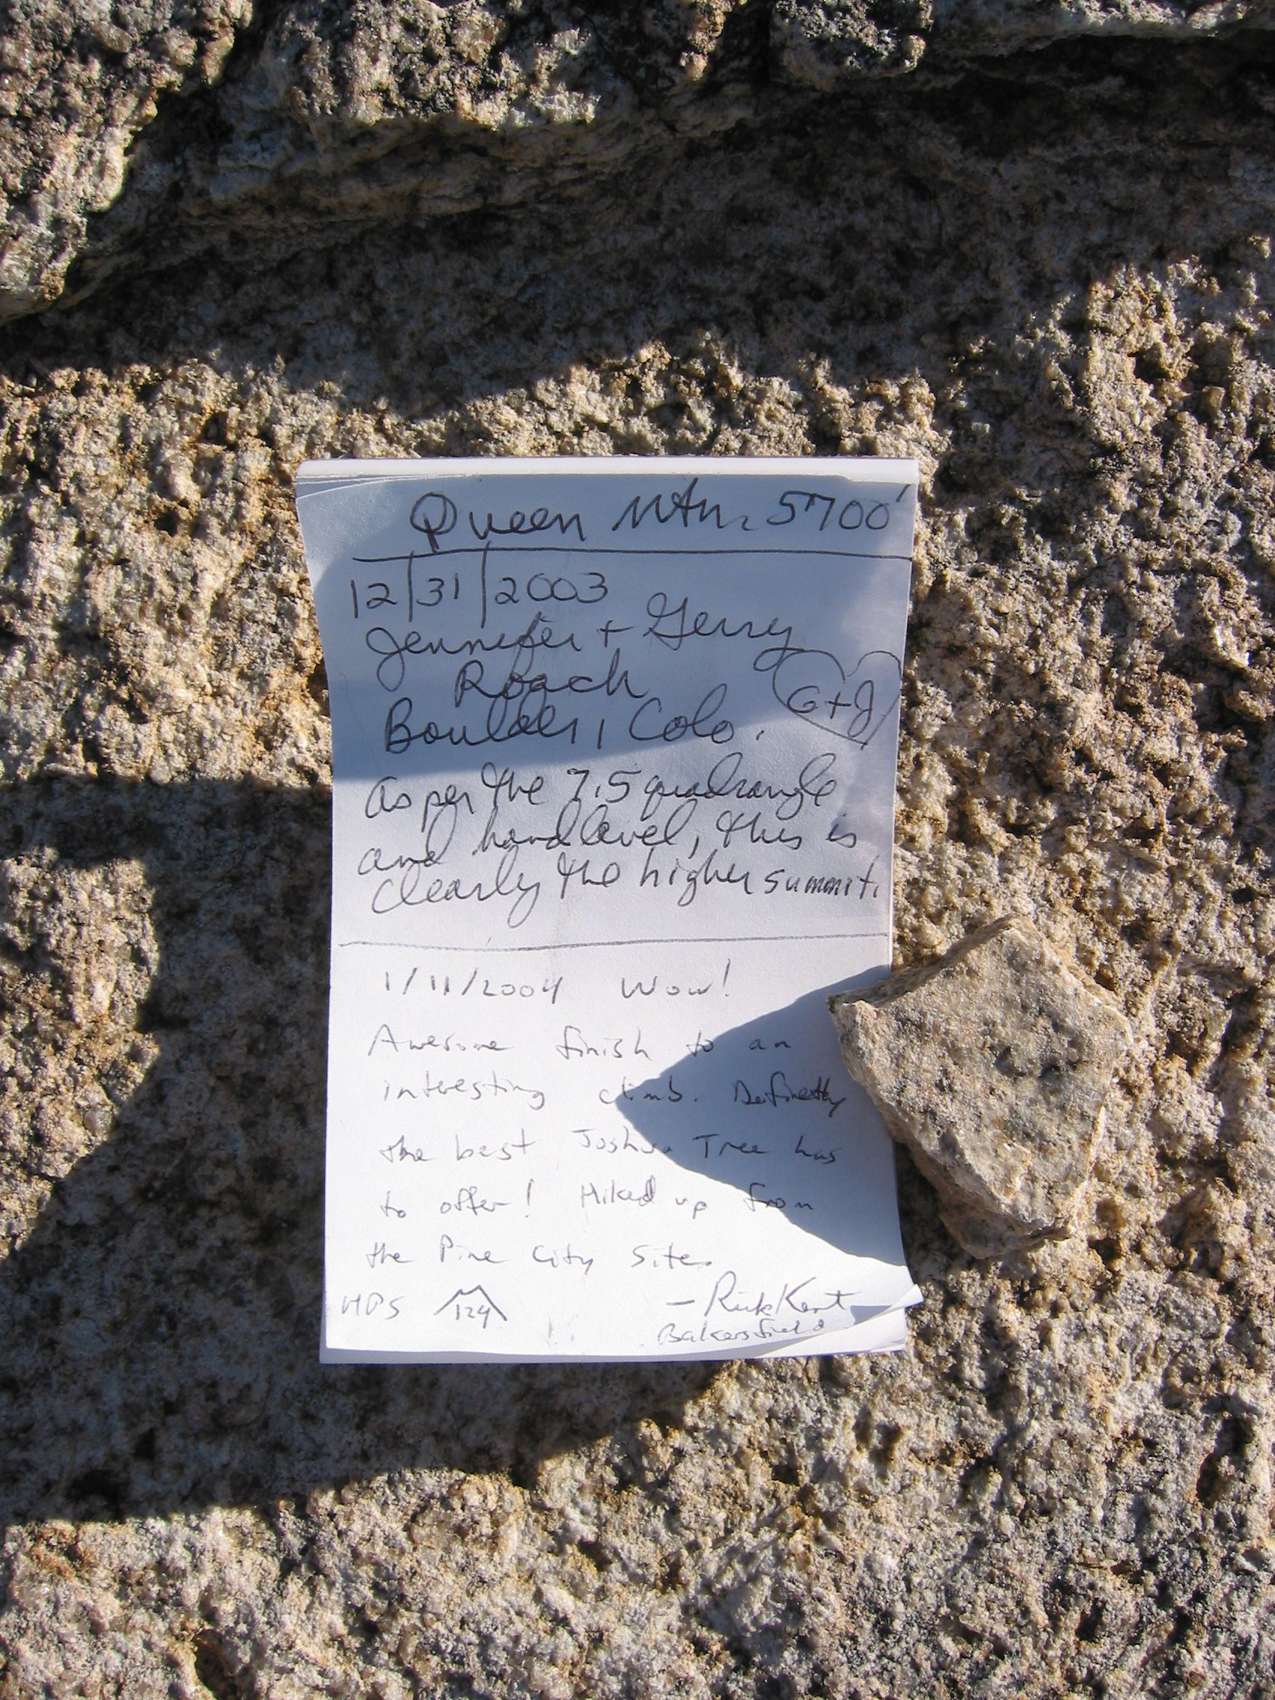 Queen Mtn. 5700'
12/31/2003
Jennifer + Gerry
Roach
G+J
Boulder, Colo.
As per the 7.5 quadrangle
and hand level, this is
clearly the higher summit.
1/11/2004 Wow!
Awesome finish to an
interesting climb. Definetly
the best Joshua Tree has
to offer! Hiked up from
the Pine City Site.
HPS 124 - Rick Kent
Bakersfield